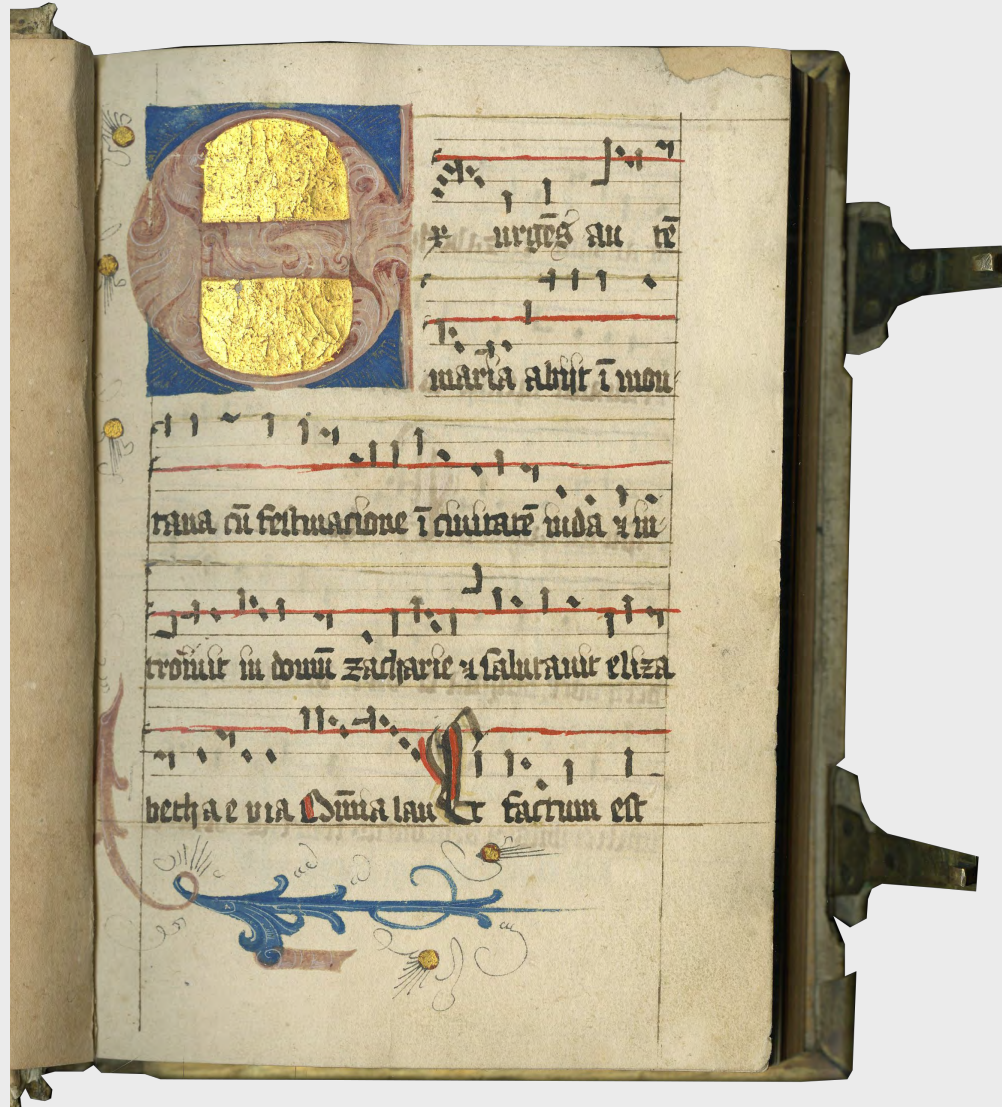 Ex urgēs au tē
maria abijt ī mon
tana cū festinacione ī ciuitatē iuda ⁊ in
troiuit in domū zacharie ⁊ salutauit eliza
beth a e v ı a Om̄ia lau Et factum est